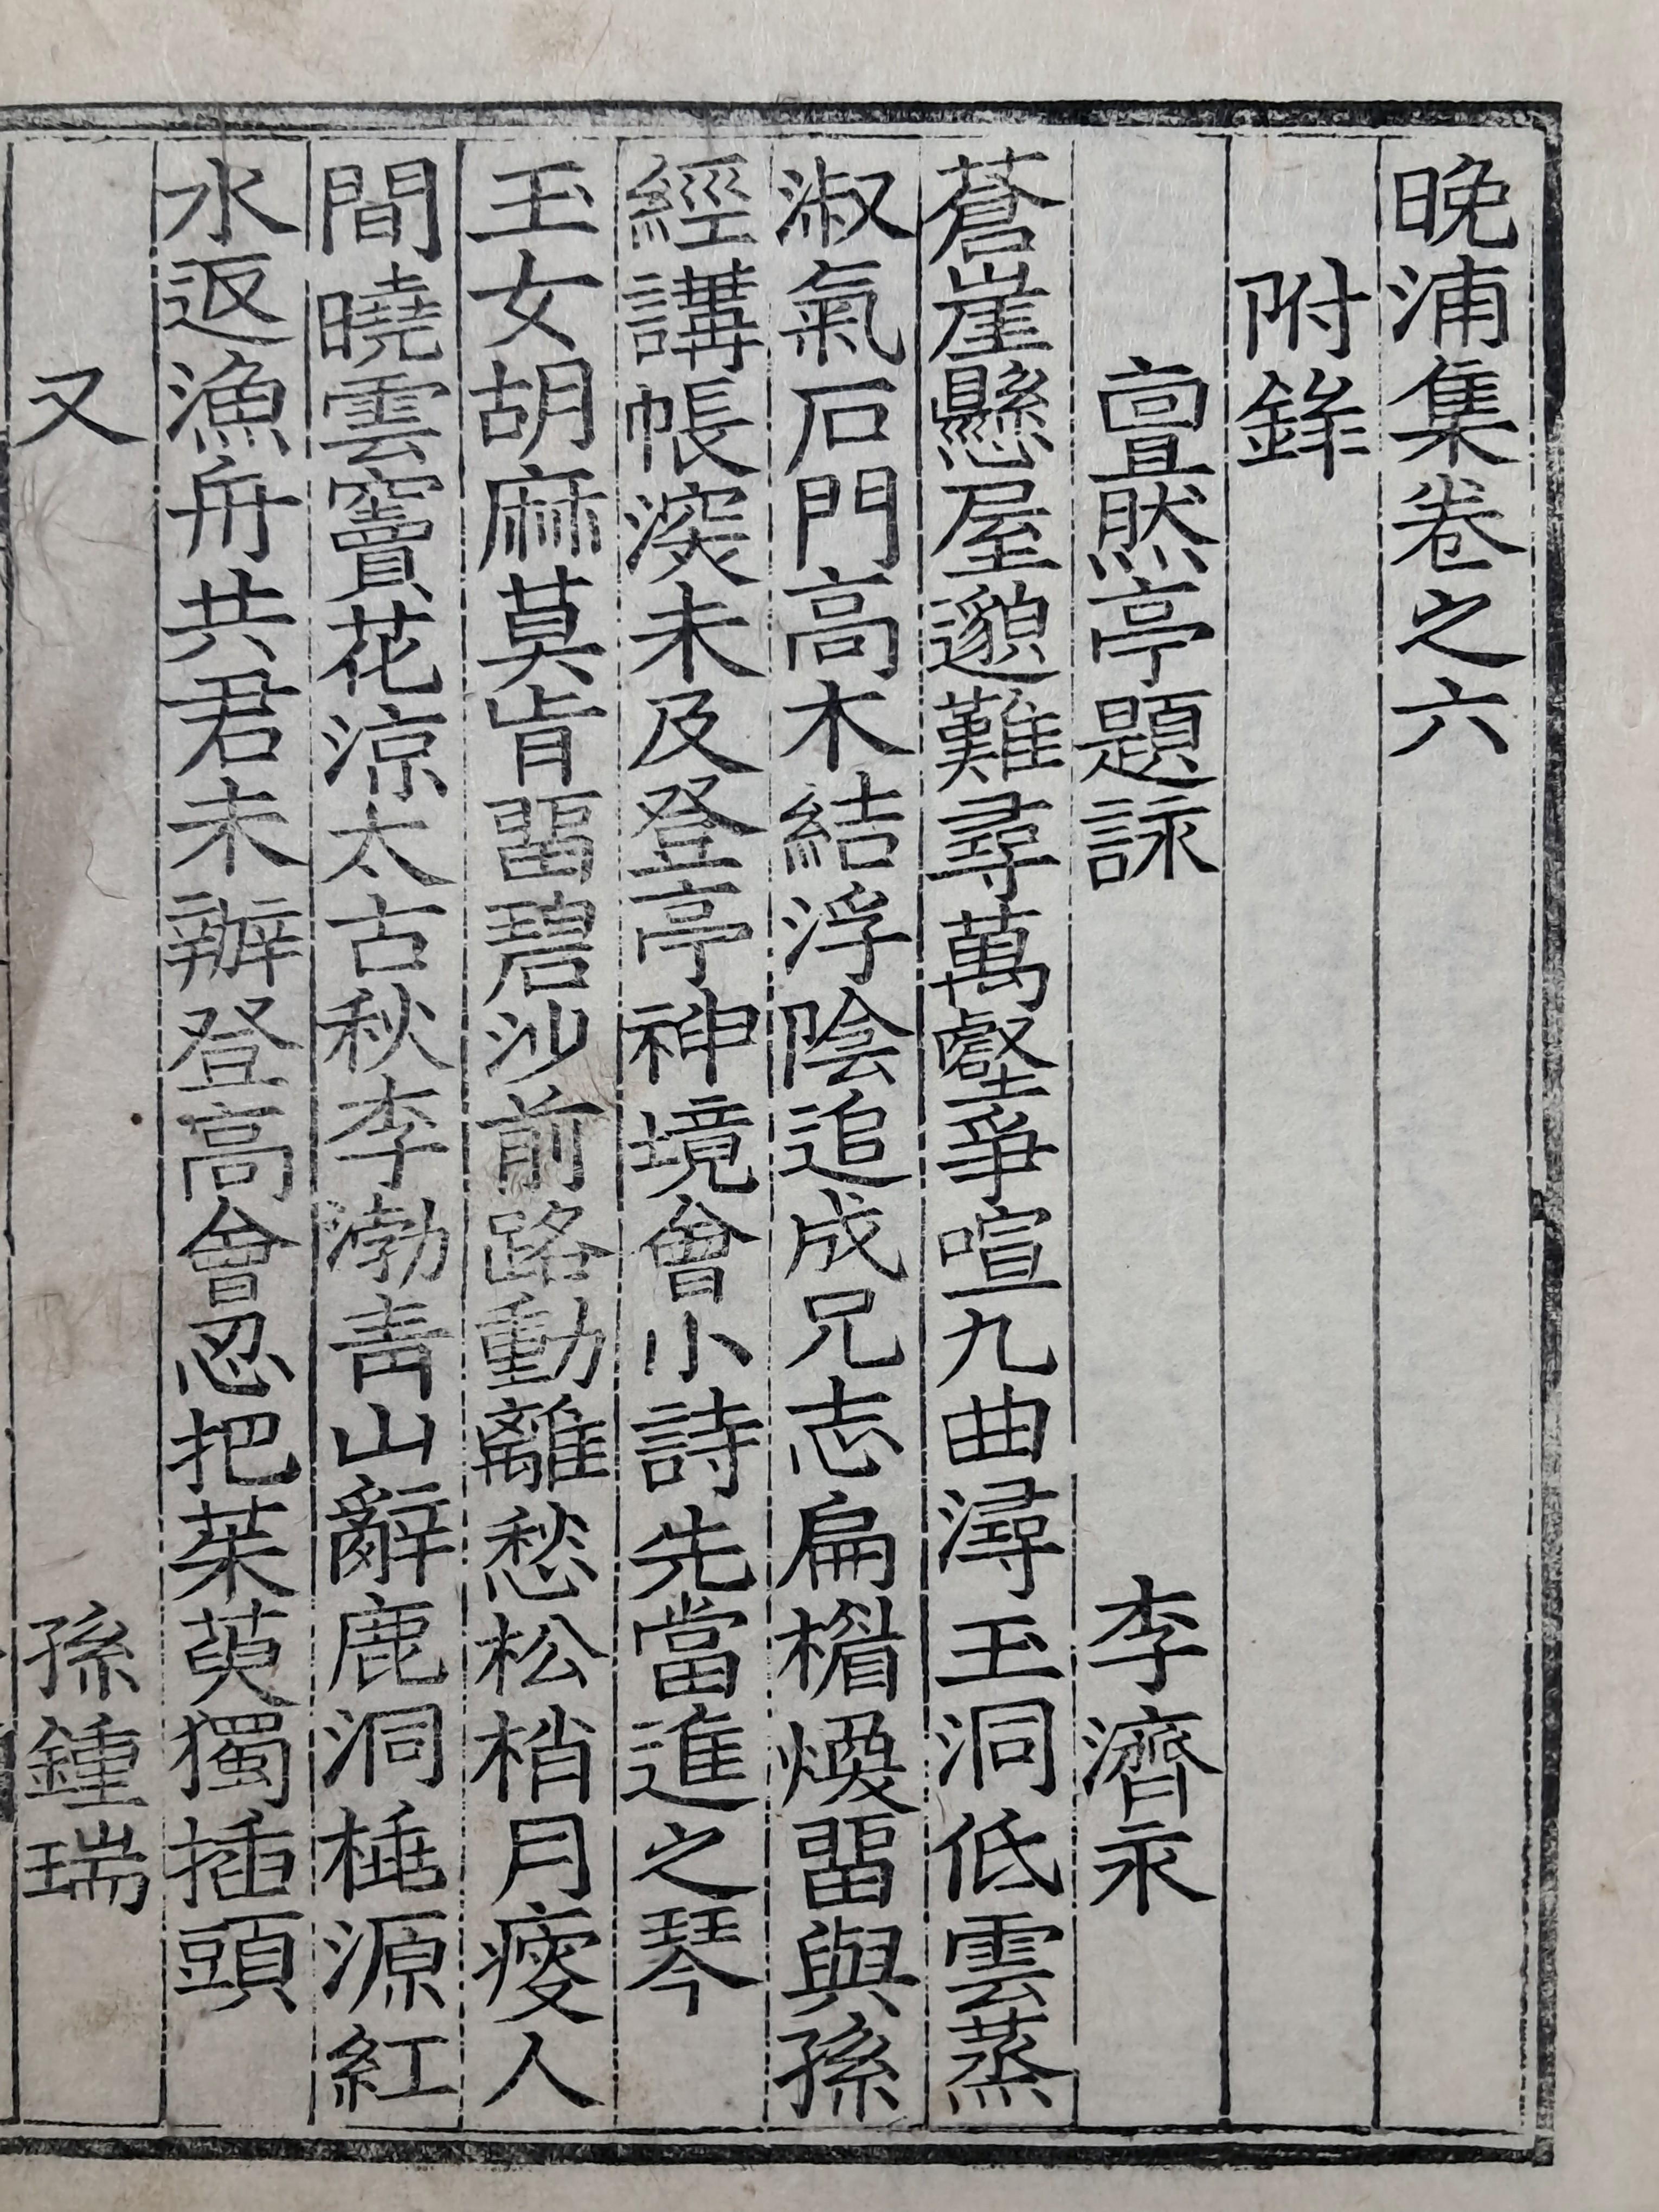 晩浦集卷之六
附錄
亶然亭題詠 李濟永
蒼崖懸屋邈難尋萬壑爭喧九曲潯玉洞低雲蒸
淑氣石門高木結浮陰追成兄志扁楣煥留與孫
經講帳深未及登亭神境會小詩先當進之琴
玉女胡麻莫肯留碧沙前路動離愁松梢月瘦人
間曉雲竇花涼太古秋李渤靑山辭鹿洞桃源紅
水返漁舟共君未辦登高會忍把茱萸獨揷頭
又 孫鍾瑞